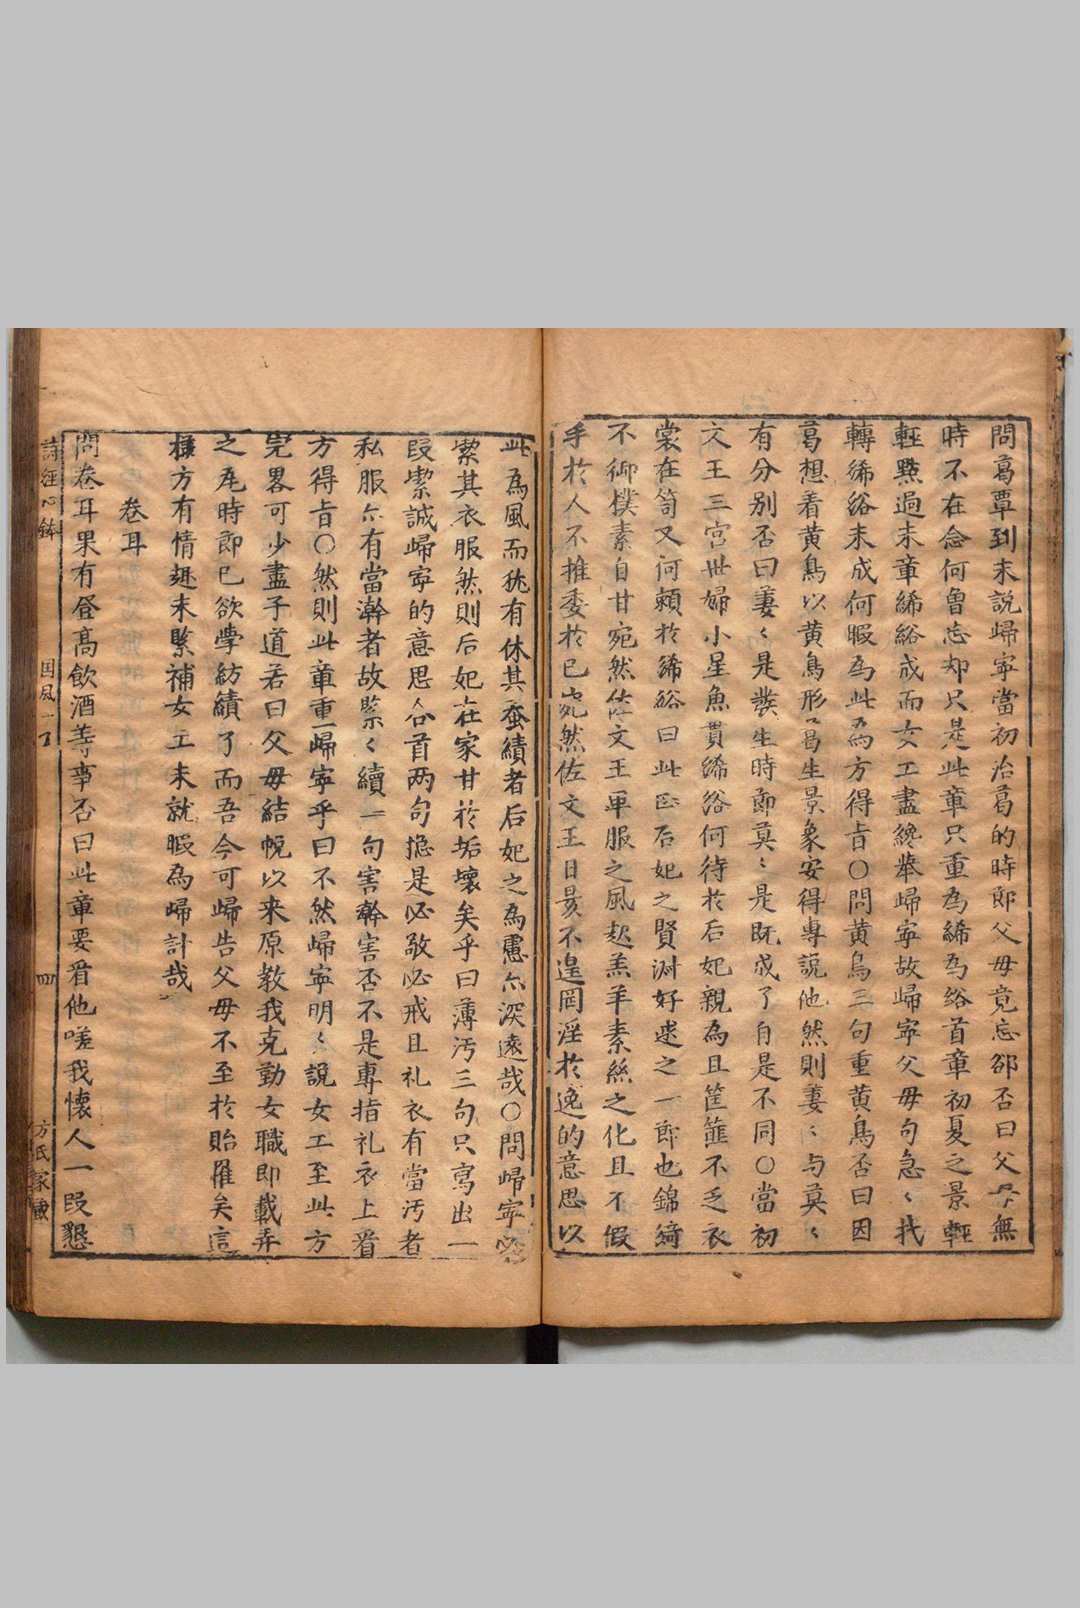 問葛覃到末說歸寧當初治葛的時節父母竟忘却否曰父母無
時不在念何曾忘却只是此章只重為絺為綌首章初夏之景輕
輕點過末章絺綌成而女工盡纔舉歸寧故歸寧父母句急〻找
轉絺綌未成何暇為此為方得旨〇問黃鳥三句重黃鳥否曰因
葛想着黃鳥以黃鳥形容葛生景象安得專說他然則萋〻与莫〻
有分別否曰萋〻是發生時節莫〻是既成了自是不同〇當初
文王三宮世婦小星魚貫絺綌何待於后妃親為且筐篚不乏衣
裳在笥又何賴於絺綌曰此正后妃之賢淵好逑之一節也錦綺
不御樸素自甘宛然佐文王卑服之風起羔羊素絲之化且不假
手於人不推委於已宛然佐文王日昃不遑罔淫於逸的意思以
此為風而猶有休其蚕績者后妃之為慮亦深遠哉〇問歸寧必
潔其衣服然則后妃在家甘於垢壞矣乎曰薄汚三句只寫出一
段潔誠歸寧的意思合首两句揔是必敬必戒且礼衣有當汚者
私服亦有當澣者故緊〻續一句害澣害否不是專指礼衣上看
方得旨〇然則此章重歸寧乎曰不然歸寧明〻說女工至此方
完畧可少盡子道若曰父母結帨以來原教我克勤女職即載弄
之瓦時即已欲學紡績了而吾今可歸告父母不至於貽罹矣這
様方有情趣未緊補女工未就暇為歸計哉
卷耳
問卷耳果有登高飲酒等事否曰此章要看他嗟我懷人一段懇
詩經心鉢
国風一
四
方氏家藏